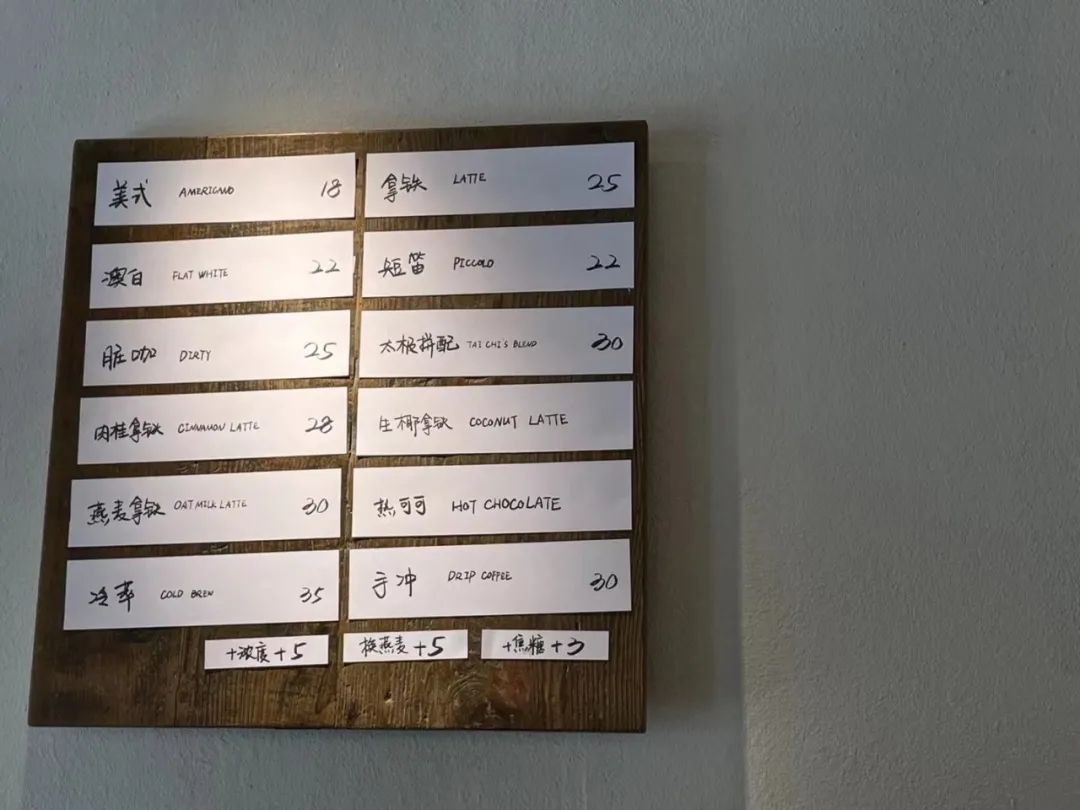 美式 AMERICANO 18
拿铁 LATTE 25
澳白 FLAT WHITE 22
短笛 PICCOLO 22
脏咖 DIRTY 25
太极拼配 TAI CHI'S BLEND 30
肉桂拿铁 CINNAMON LATTE 28
生椰拿铁 COCONUT LATTE
燕麦拿铁 OAT MILK LATTE 30
热可可 HOT CHOCOLATE
冷萃 COLD BREW 35
手冲 DRIP COFFEE 30
+浓度+5
换燕麦+5
+焦糖+3